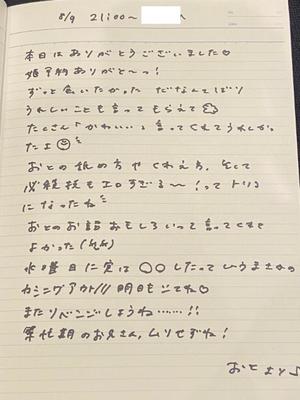 8/9 21:00〜
へ
本日はありがとうございました♡
姫予約ありがと〜っ！
ずっと会いたかった だなんてばり
うれしいことも言ってもらえて
たくさん「かわいい」言ってくれてうれしかっ
たよ
おとの舐め方やくわえ方、そして
必殺技もエロすぎる〜！ってトリコ
になったね
おとのお話おもしろいって言ってくれて
よかった
水曜日に実は〇〇したっていうまさかの
カミングアウト/// 明日も でね♡
またリベンジしようね……!!
繁忙期のお兄さん、ムリせずね！
おと より♪